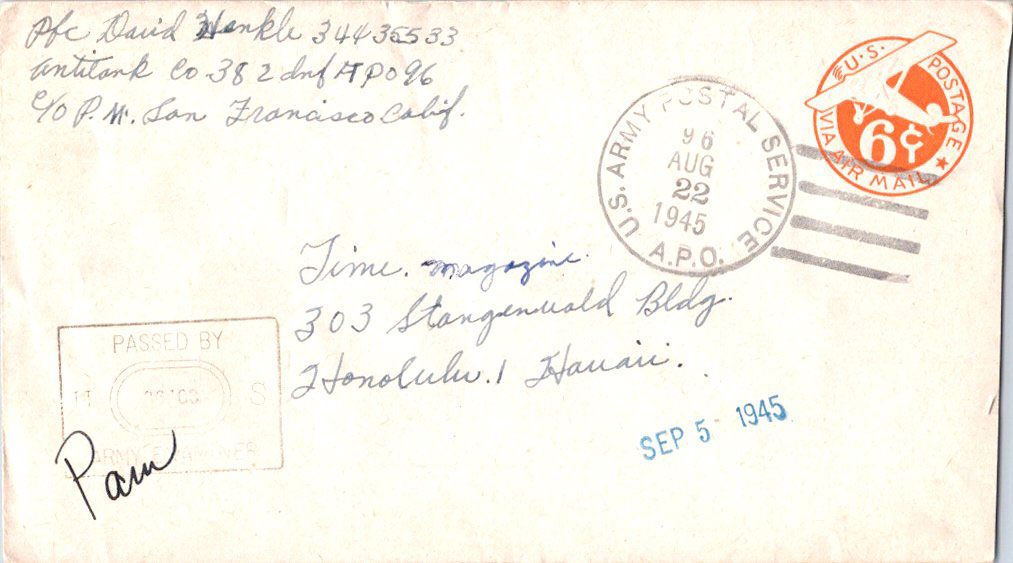 Pfc David Henkle 34435533
Antitank Co 382 Inf APO 96
c/o P.M. San Francisco Calif.
U.S. POSTAGE
VIA AIR MAIL
6¢
U.S. ARMY POSTAL SERVICE
A.P.O.
96
AUG
22
1945
Time. magazine.
303 Stangenwald Bldg.
Honolulu. 1 Hawaii.
PASSED BY
S
ARMY EXAMINER
SEP 5 1945
Pam